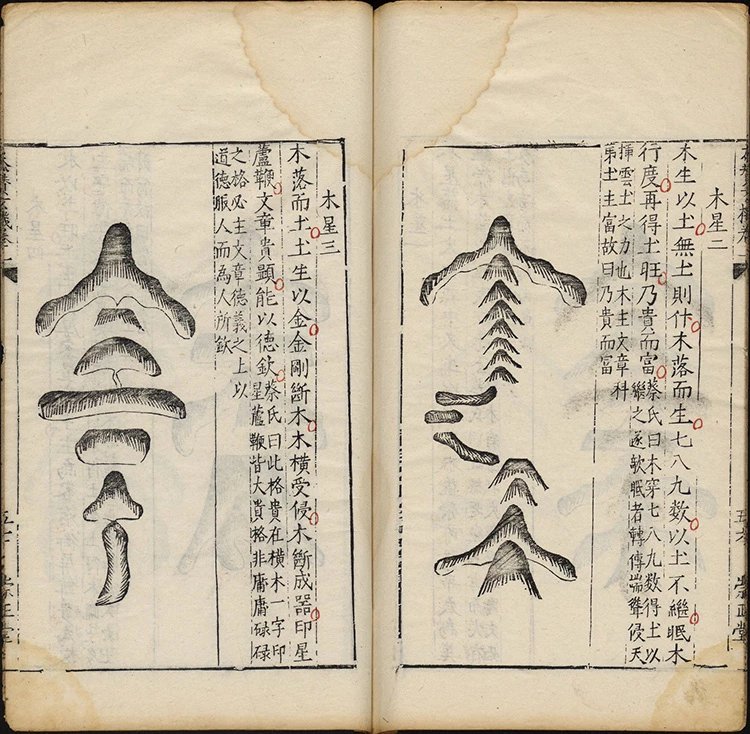 木星二
木生以土無土則仆木落而生七八九數以土不繼眠木
行度再得土旺乃貴而富蔡氏曰木穿七八九數得土以
繼之逐軟眠者轉傳端聳侵天
揮雲土之力也木主文章科
第土主富故曰乃貴而富
崇正堂
木星三
木落而土土生以金金剛斷木木橫受侵木斷成器印星
蘆鞭文章貴顯能以德欽蔡氏曰此格貴在橫木一字印
星蘆鞭皆大貴格非庸庸碌碌
之格必主文章德義之士以
道德服人而為人所欽
崇正堂